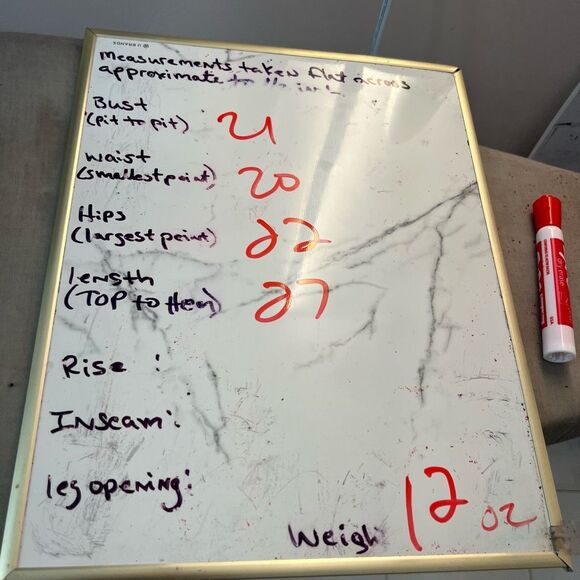 U BRANDS
measurements taken flat across
approximate
Bust
(pit to pit) 21
waist
(smallest point) 20
Hips
(largest point) 22
length
(TOP to Hem) 27
Rise :
Inseam:
leg opening:
Weigh 12 oz